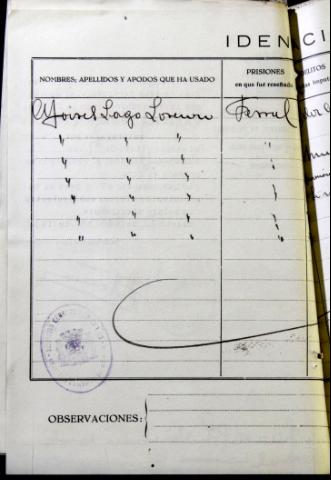 IDENCI
NOMBRES, APELLIDOS Y APODOS QUE HA USADO
PRISIONES
en que fué reseñado
DELITOS
Moises Lago Lorenzo Ferrol
" " " "
" " " "
" " " "
" " " "
" " " "
" " " "
OBSERVACIONES: